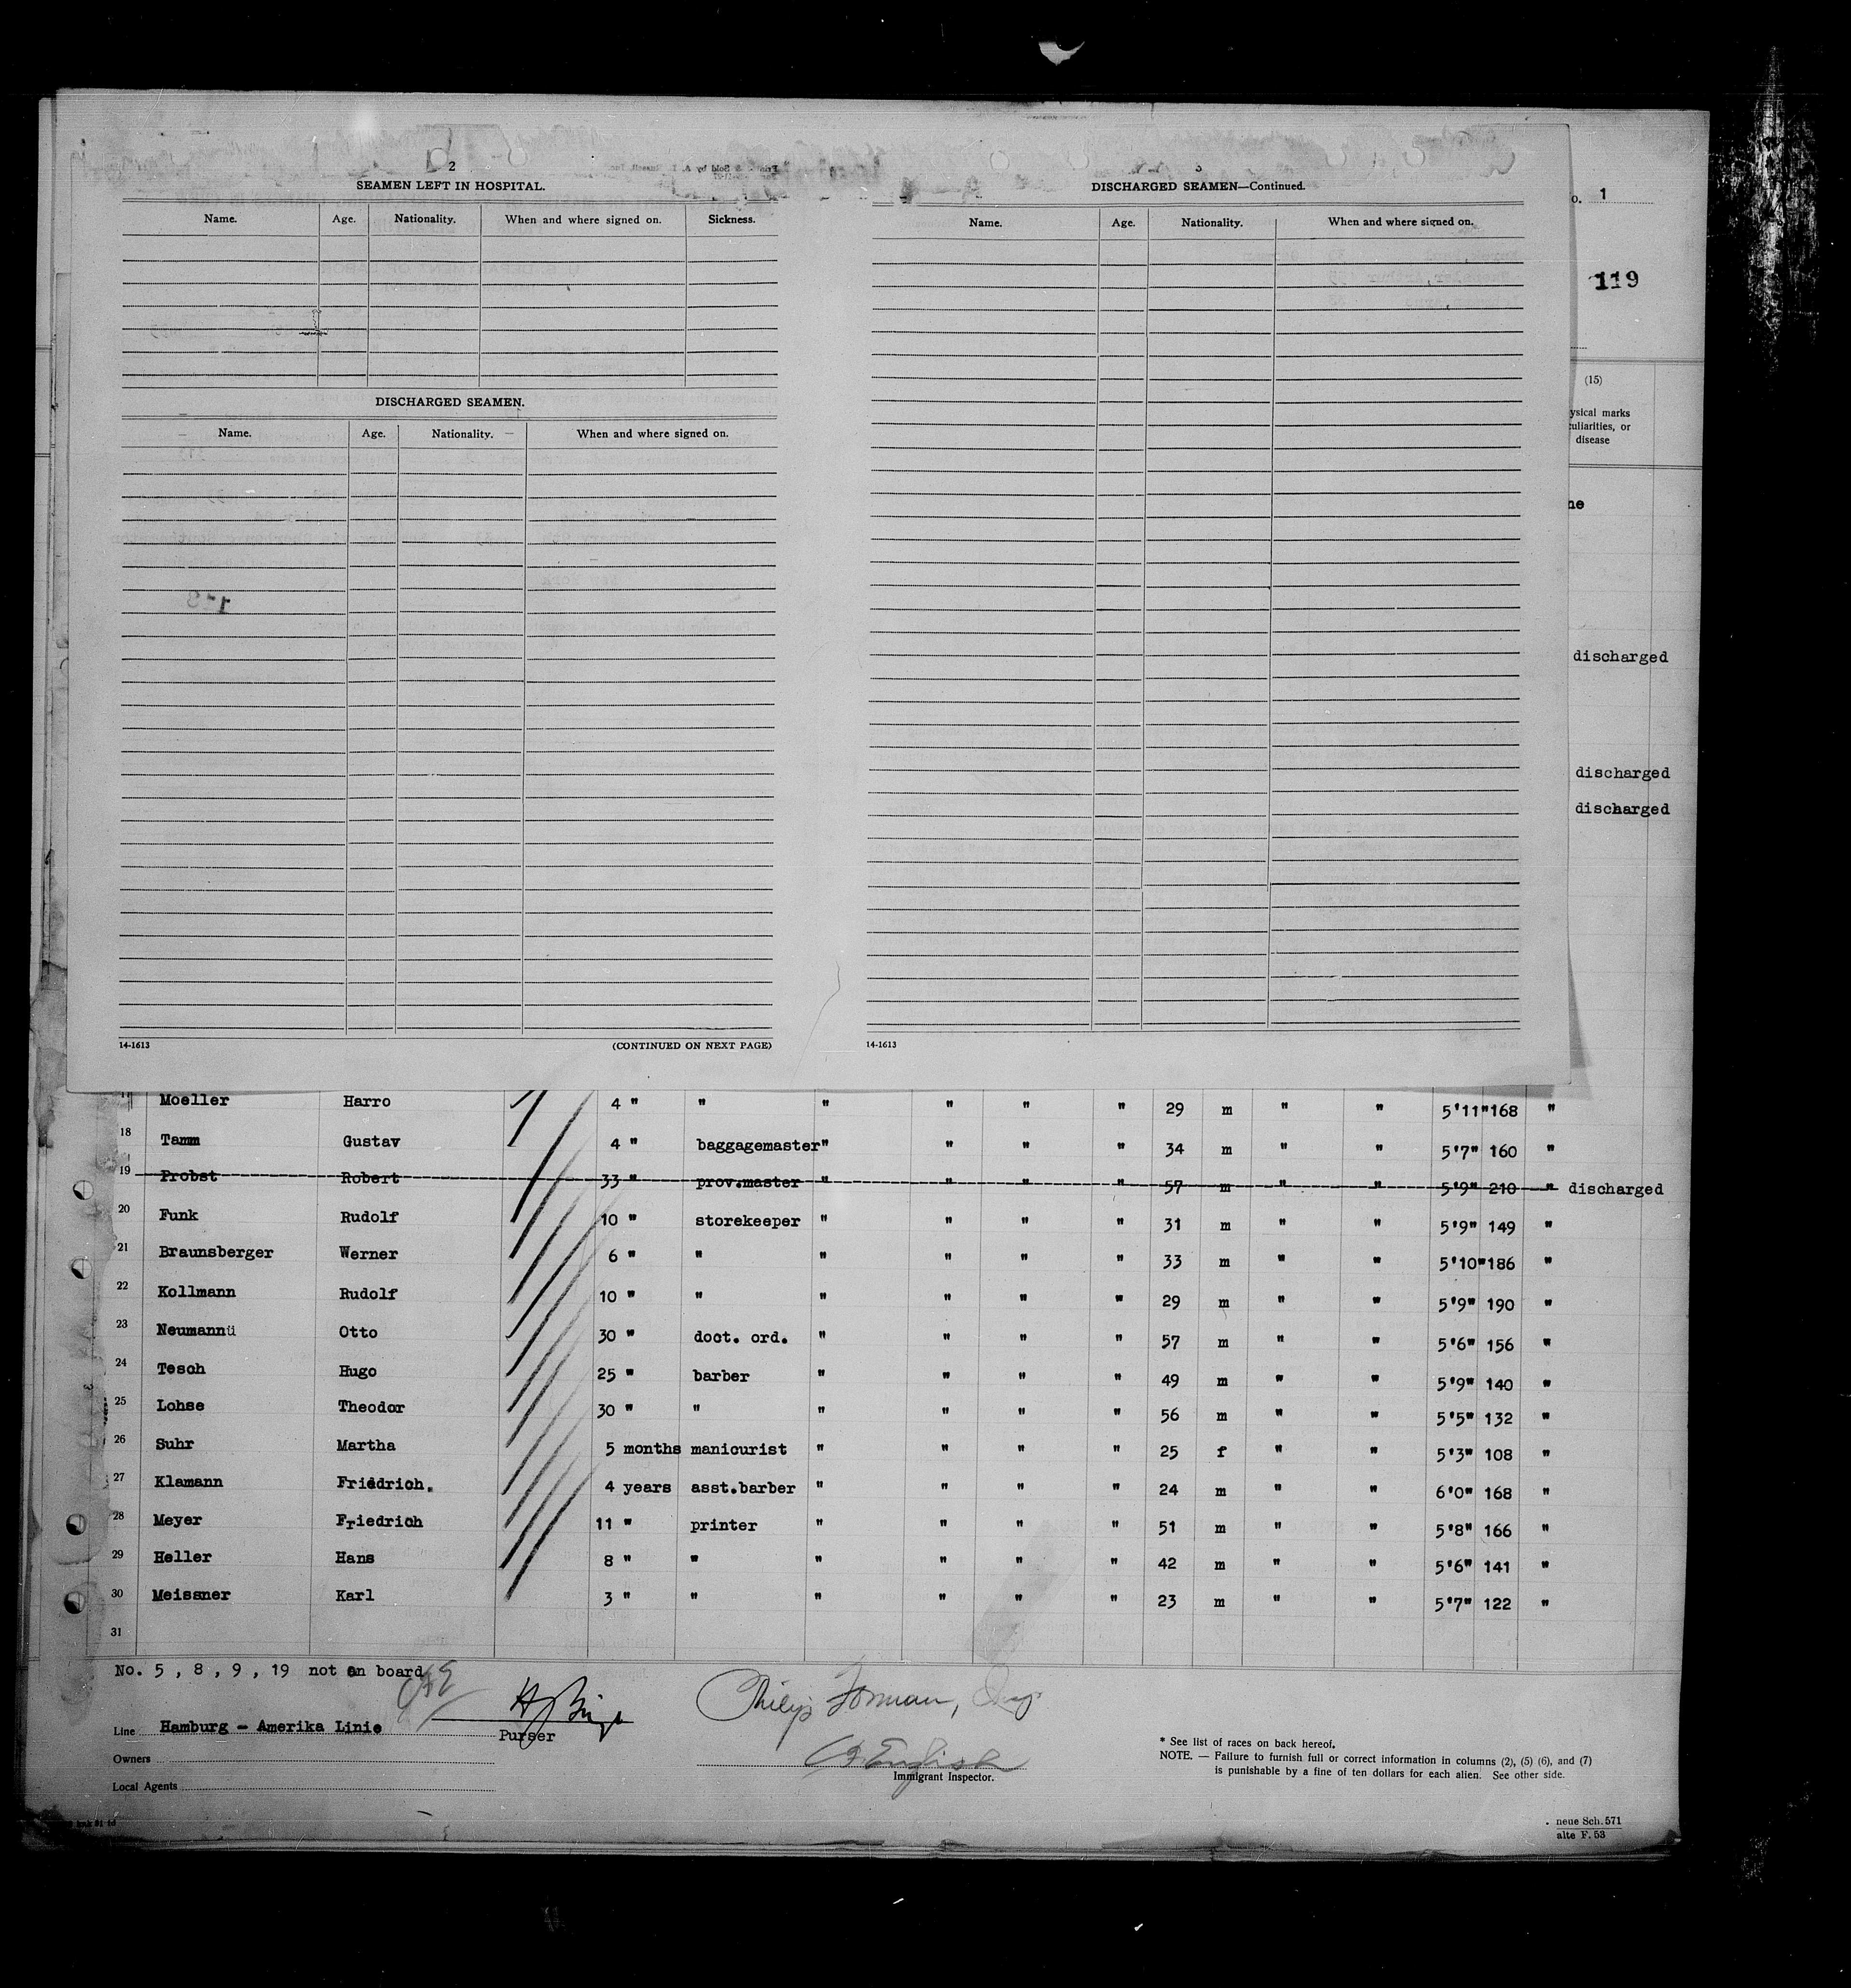 2
SEAMEN LEFT IN HOSPITAL.
Name. Age. Nationality. When and where signed on. Sickness.
DISCHARGED SEAMEN.
Name. Age. Nationality. When and where signed on.
14-1613 (CONTINUED ON NEXT PAGE)
3
DISCHARGED SEAMEN—Continued.
Name. Age. Nationality. When and where signed on.
14-1613
o. 1
119
(15)
ysical marks
culiarities, or
disease
ne
discharged
discharged
discharged
17 Moeller Harro 4 " " " " " " 29 m " " 5'11" 168 "
18 Tamm Gustav 4 " baggagemaster " " " " 34 m " " 5'7" 160 "
19 Probst Robert 33 " prov.master " " " " 57 m " " 5'9" 210 " discharged
20 Funk Rudolf 10 " storekeeper " " " " 31 m " " 5'9" 149 "
21 Braunsberger Werner 6 " " " " " " 33 m " " 5'10" 186 "
22 Kollmann Rudolf 10 " " " " " " 29 m " " 5'9" 190 "
23 Neumannü Otto 30 " doct. ord. " " " " 57 m " " 5'6" 156 "
24 Tesch Hugo 25 " barber " " " " 49 m " " 5'9" 140 "
25 Lohse Theodor 30 " " " " " " 56 m " " 5'5" 132 "
26 Suhr Martha 5 months manicurist " " " " 25 f " " 5'3" 108 "
27 Klamann Friedrich. 4 years asst.barber " " " " 24 m " " 6'0" 168 "
28 Meyer Friedrich 11 " printer " " " " 51 m " " 5'8" 166 "
29 Heller Hans 8 " " " " " " 42 m " " 5'6" 141 "
30 Meissner Karl 3 " " " " " " 23 m " " 5'7" 122 "
31
No. 5 , 8 , 9 , 19 not on board
Philip Forman,
Line Hamburg - Amerika Linie
Purser
Owners
English
Immigrant Inspector.
Local Agents
* See list of races on back hereof.
NOTE. — Failure to furnish full or correct information in columns (2), (5) (6), and (7)
is punishable by a fine of ten dollars for each alien. See other side.
neue Sch. 571
alte F. 53